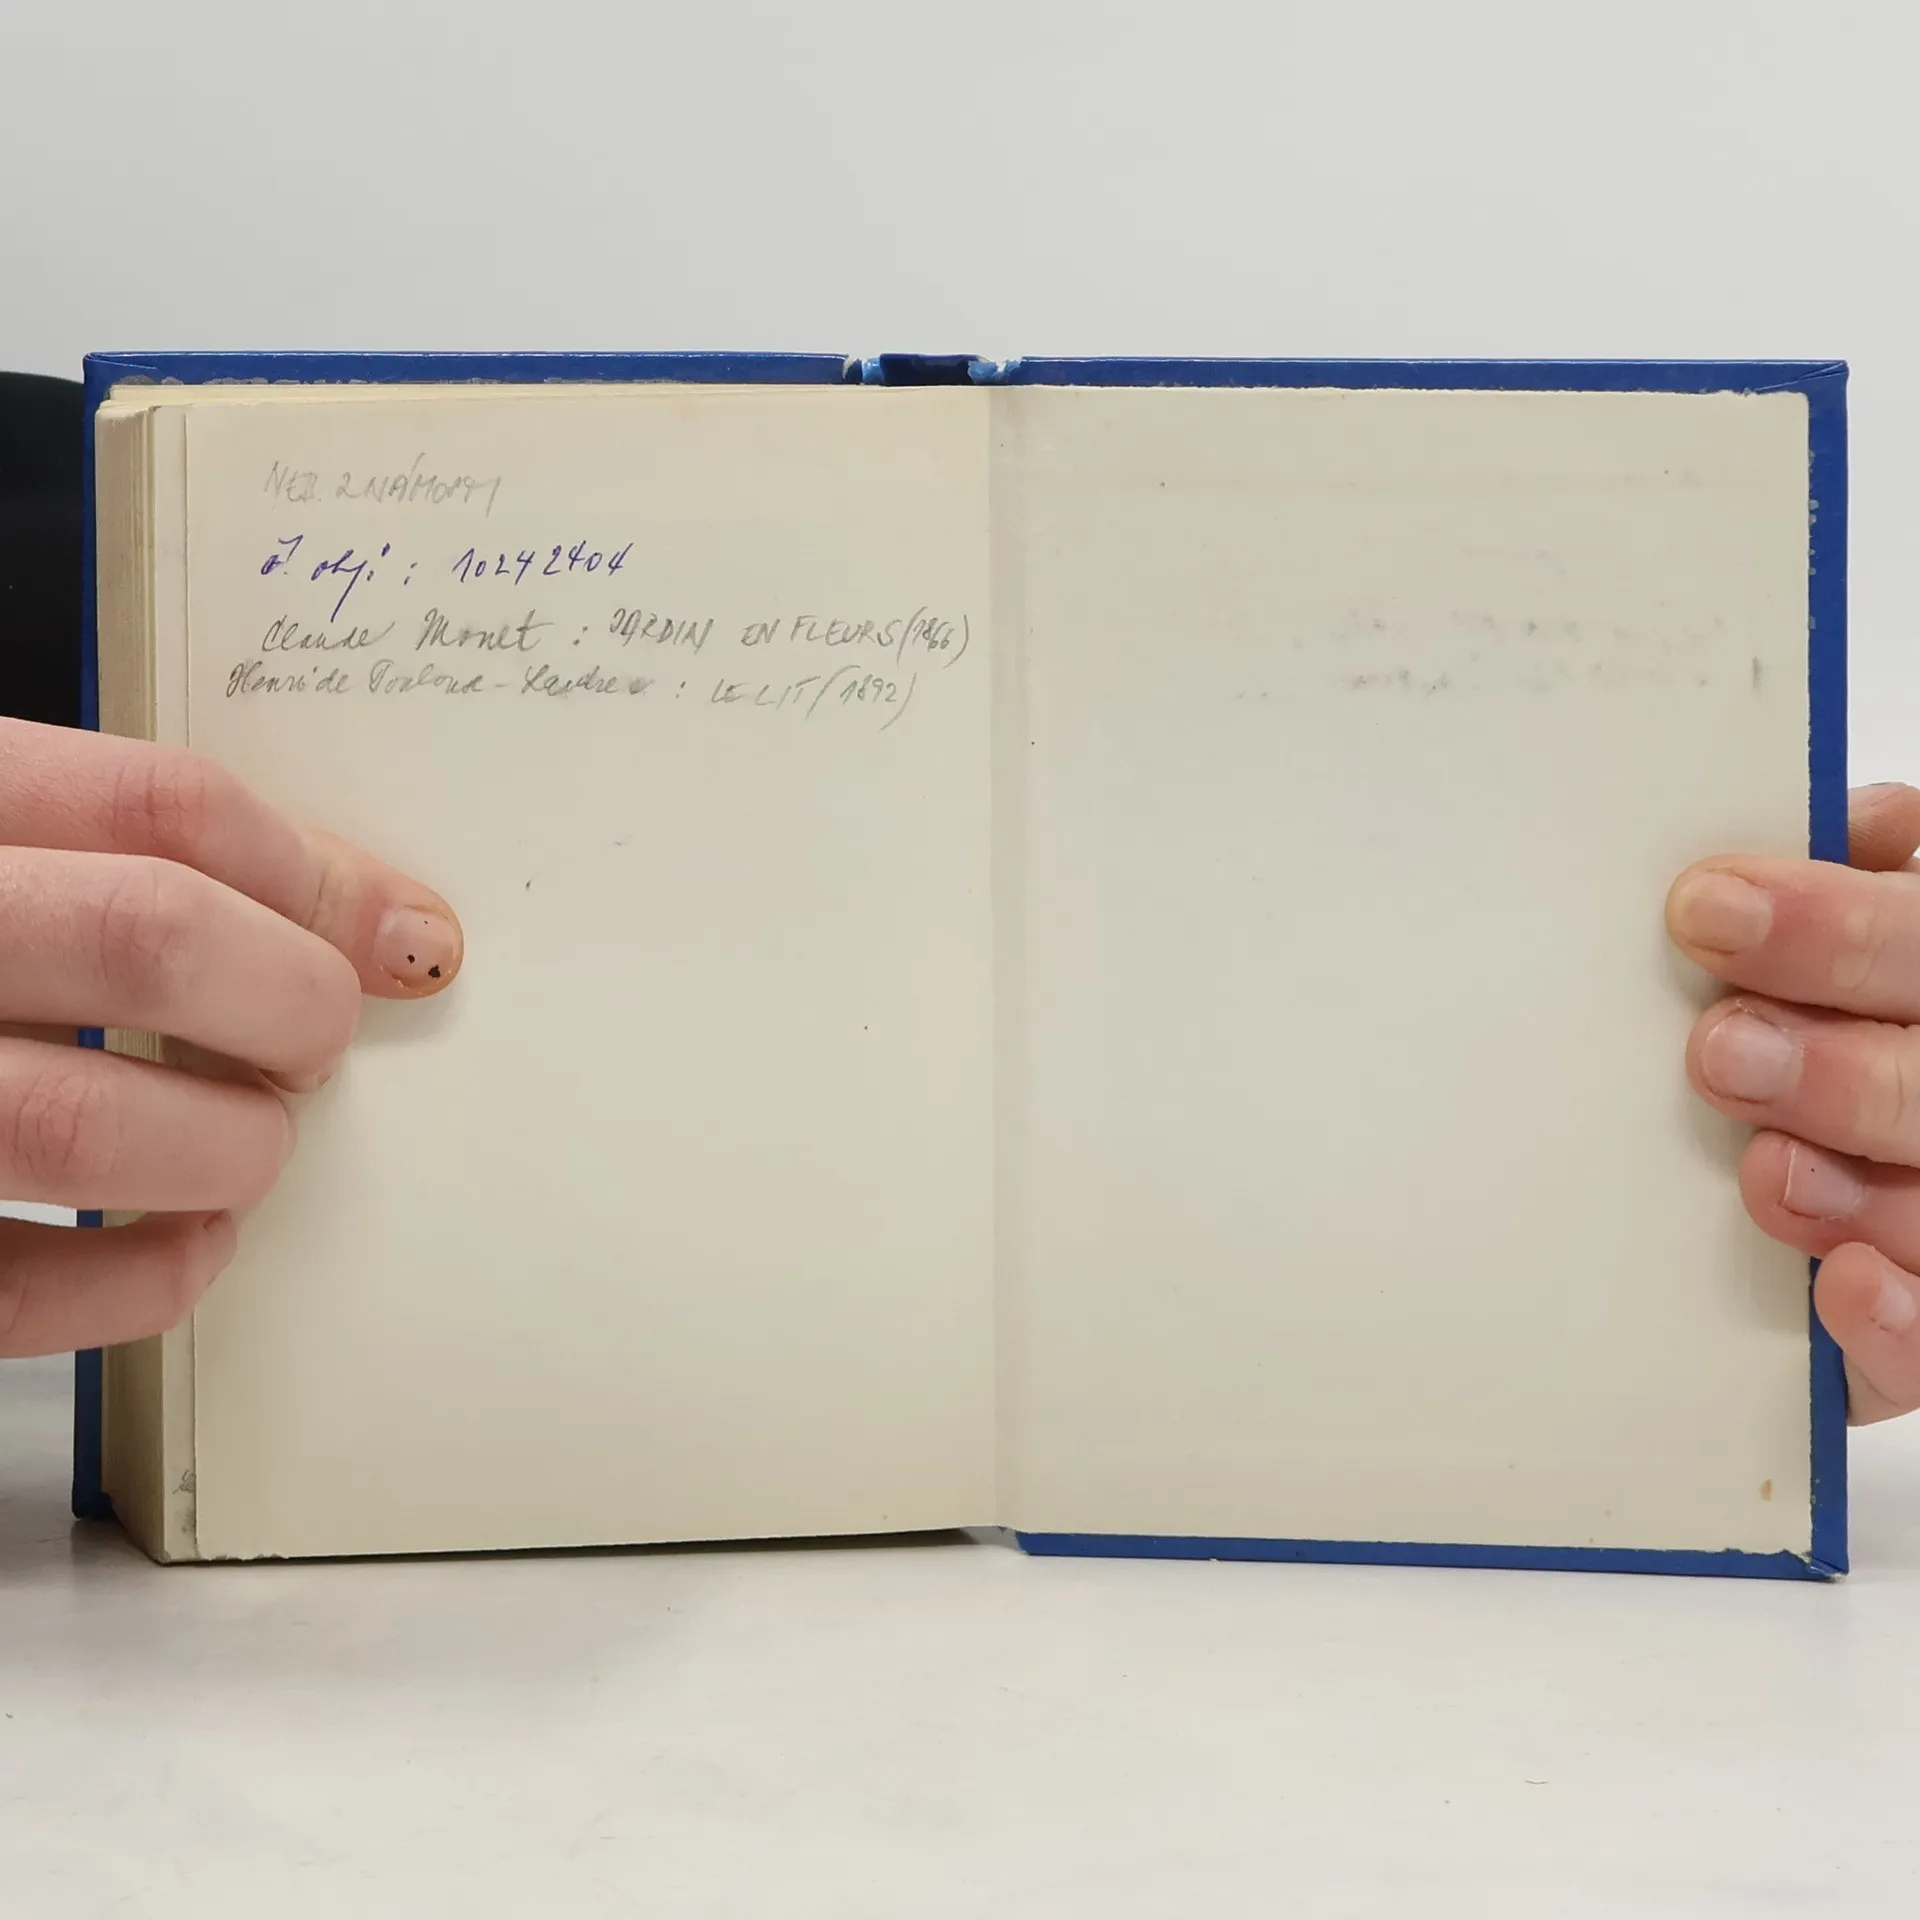 č. obj. : 10242404
Claude Monet : JARDIN EN FLEURS (1866)
Henri de Toulouse - Lautrec : LE LIT (1892)